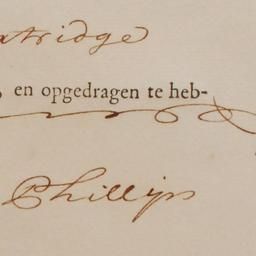 en opgedragen te heb-
Phillips